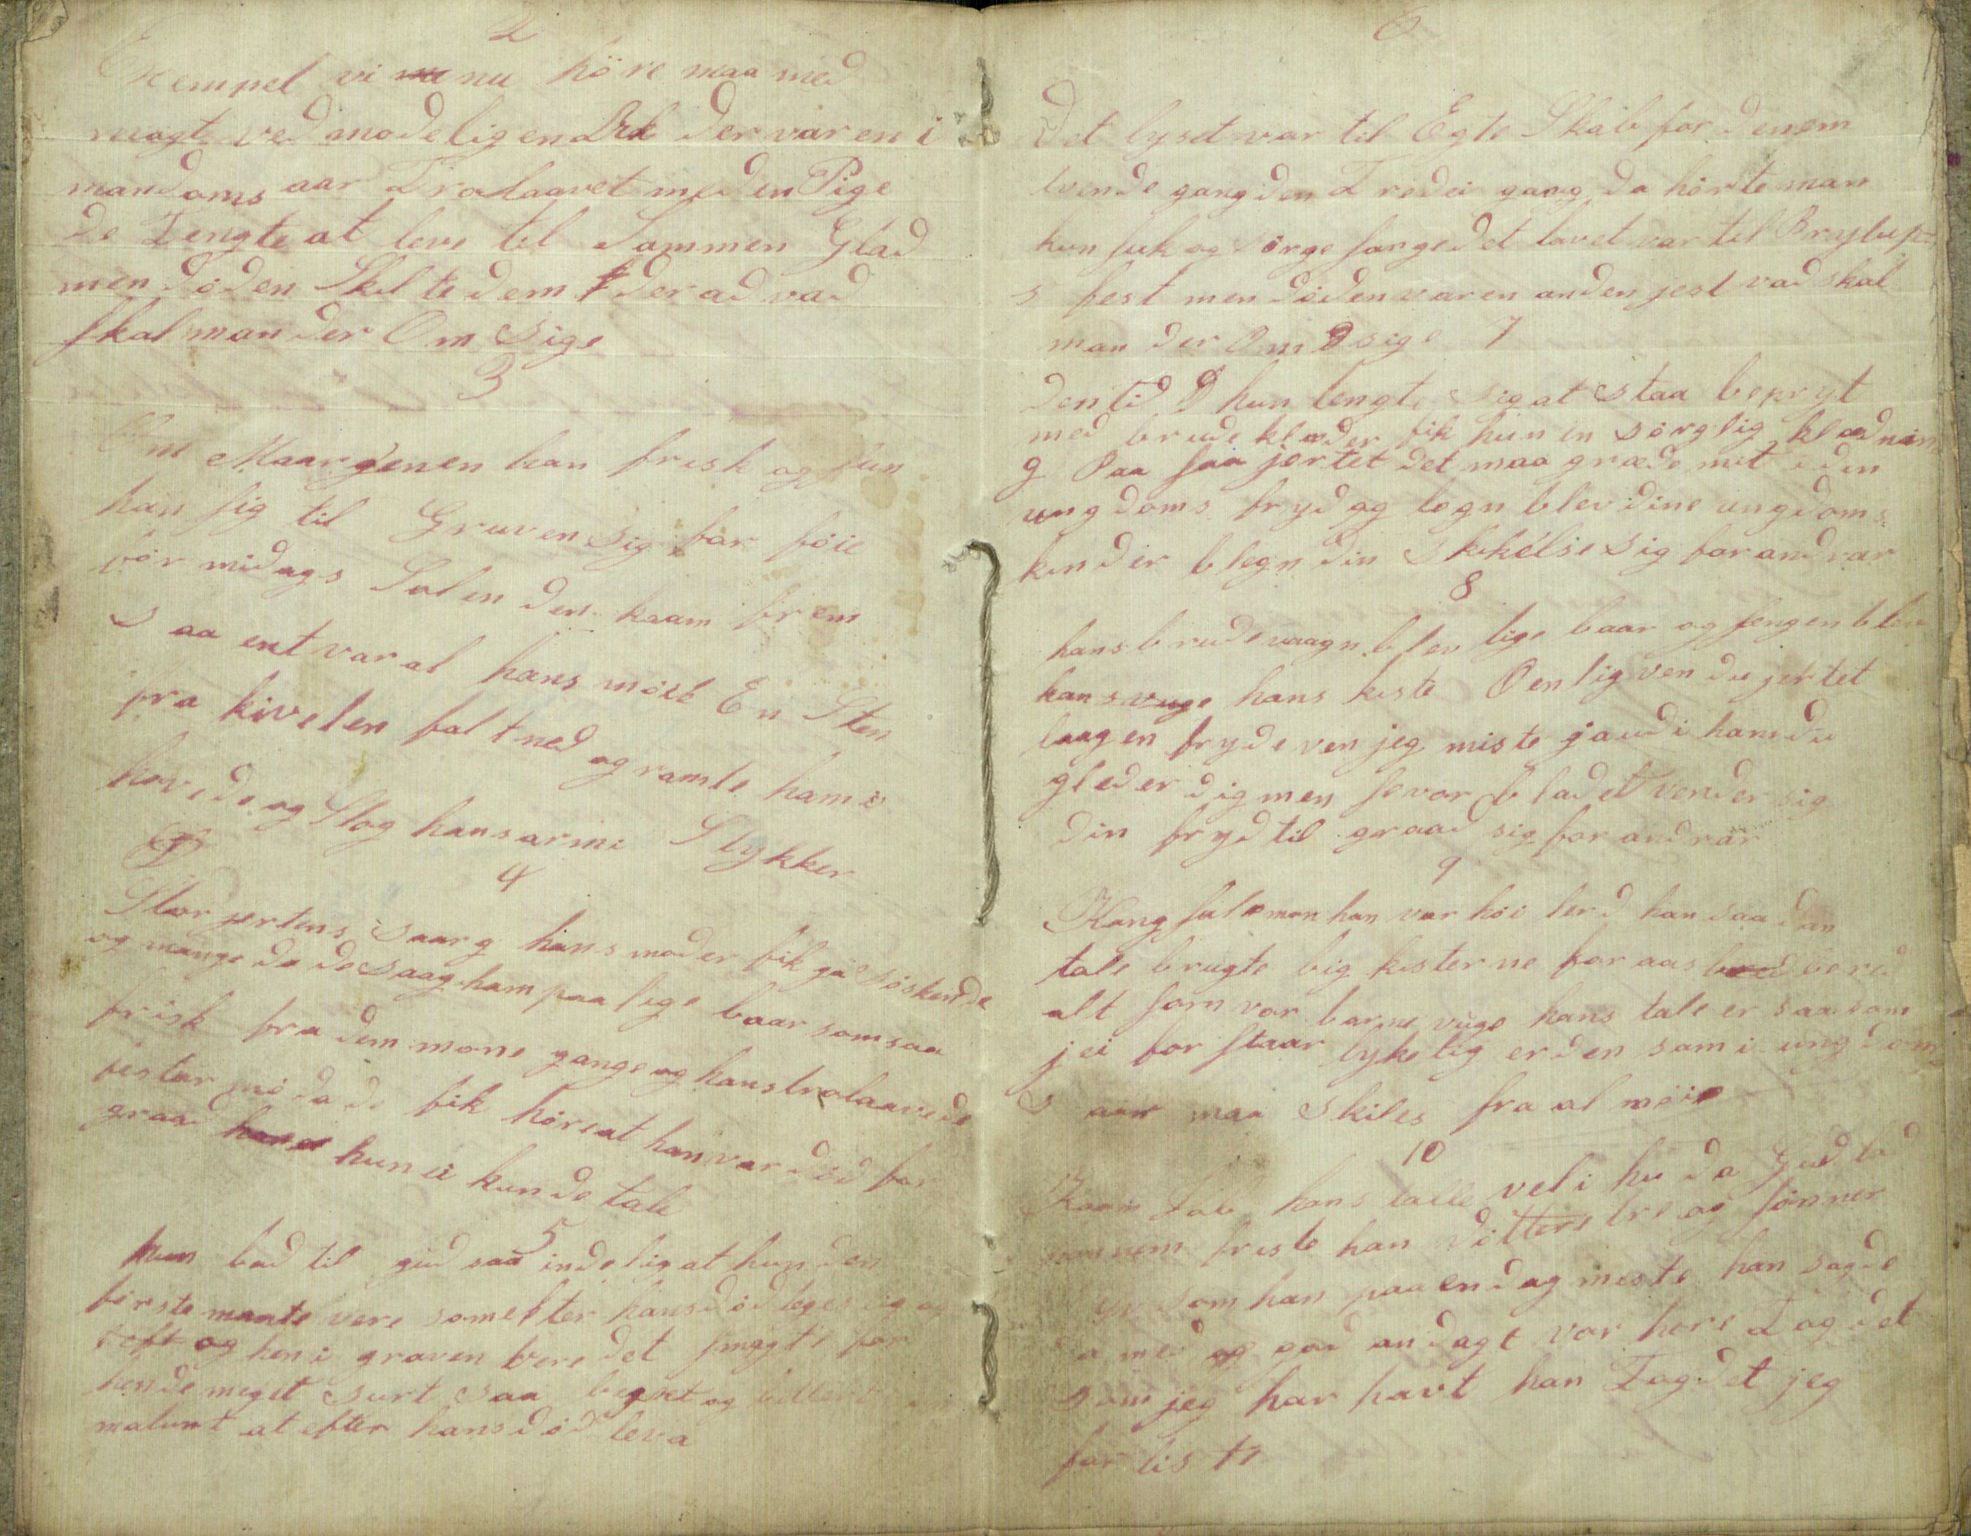 2
Exempel vi nu höre maa med
magt ved modeligen Drk der var en i
mandoms aar Trolaavet med en Pige
de Tengte at leve til Sammen Glad
men döden Skilte dem der ad vad
skal man der Om sige
3
Om Maargenen han frisk og
han sig til Gruven sig for föie
för midags Solen den kaam frem
saa ent var al hans möie En Sten
fra kivelen falt ned og ramte ham i
hovede og Slog hans arm i Stykker
4
Stor jertens saarg hans moder fik ja söskende
og mange da de saag ham paa lige baar som saa
frisk fra dem mone gange og hans trolaavede
festar mö da de fik höre at han var död for
graad hun ei kunde tale
5
hun bad til gud saa indelig at hun den
förste maate vere som efter hans död leges sig og
og hen i graven bere det smagte for
hende meget surt saa beskt og bittert
malurt at efter hans död leva
6
Det lyset var til Egte Skab for denem
tvende gang den Tredei gaag da hörte man
kun suk og sörge sange det lavet var til Brylup=
s fest men döden var en anden jest vad skal
man der Om sige 7
den tid hun tengte sig at staa bepryt
med brude klæder fik hun en sörglig klædnin
g Paa saa jertet det maa græde mit i den
ungdoms fryd og logn blev dine ungdoms
kinder blegn din skikelse sig forandrar
8
hans brude vaagn blev lige baar og sengen blev
hans vuge hans kiste Den lig ven du jertet
laag en fryde ven jeg miste ja ud i ham du
gleder dig men se vor bladet vender sig
din fryd til graad sig forandrar
9
Kong salomon han var höi lerd han saadan
tale brugte lig kisterne for aas bered
alt som vor barne vuge hans tale er saa som
jei for staar lykelig er den som i ungdom
s aar maa skiles fra al möie
10
Kaam Iob hans talle vel i hu da Gud
friste han dötter og sönner
syv som han paa en dag miste han sagde
a med god andagt vor here Tog det
som jeg har havt han Tog det jeg
for liste